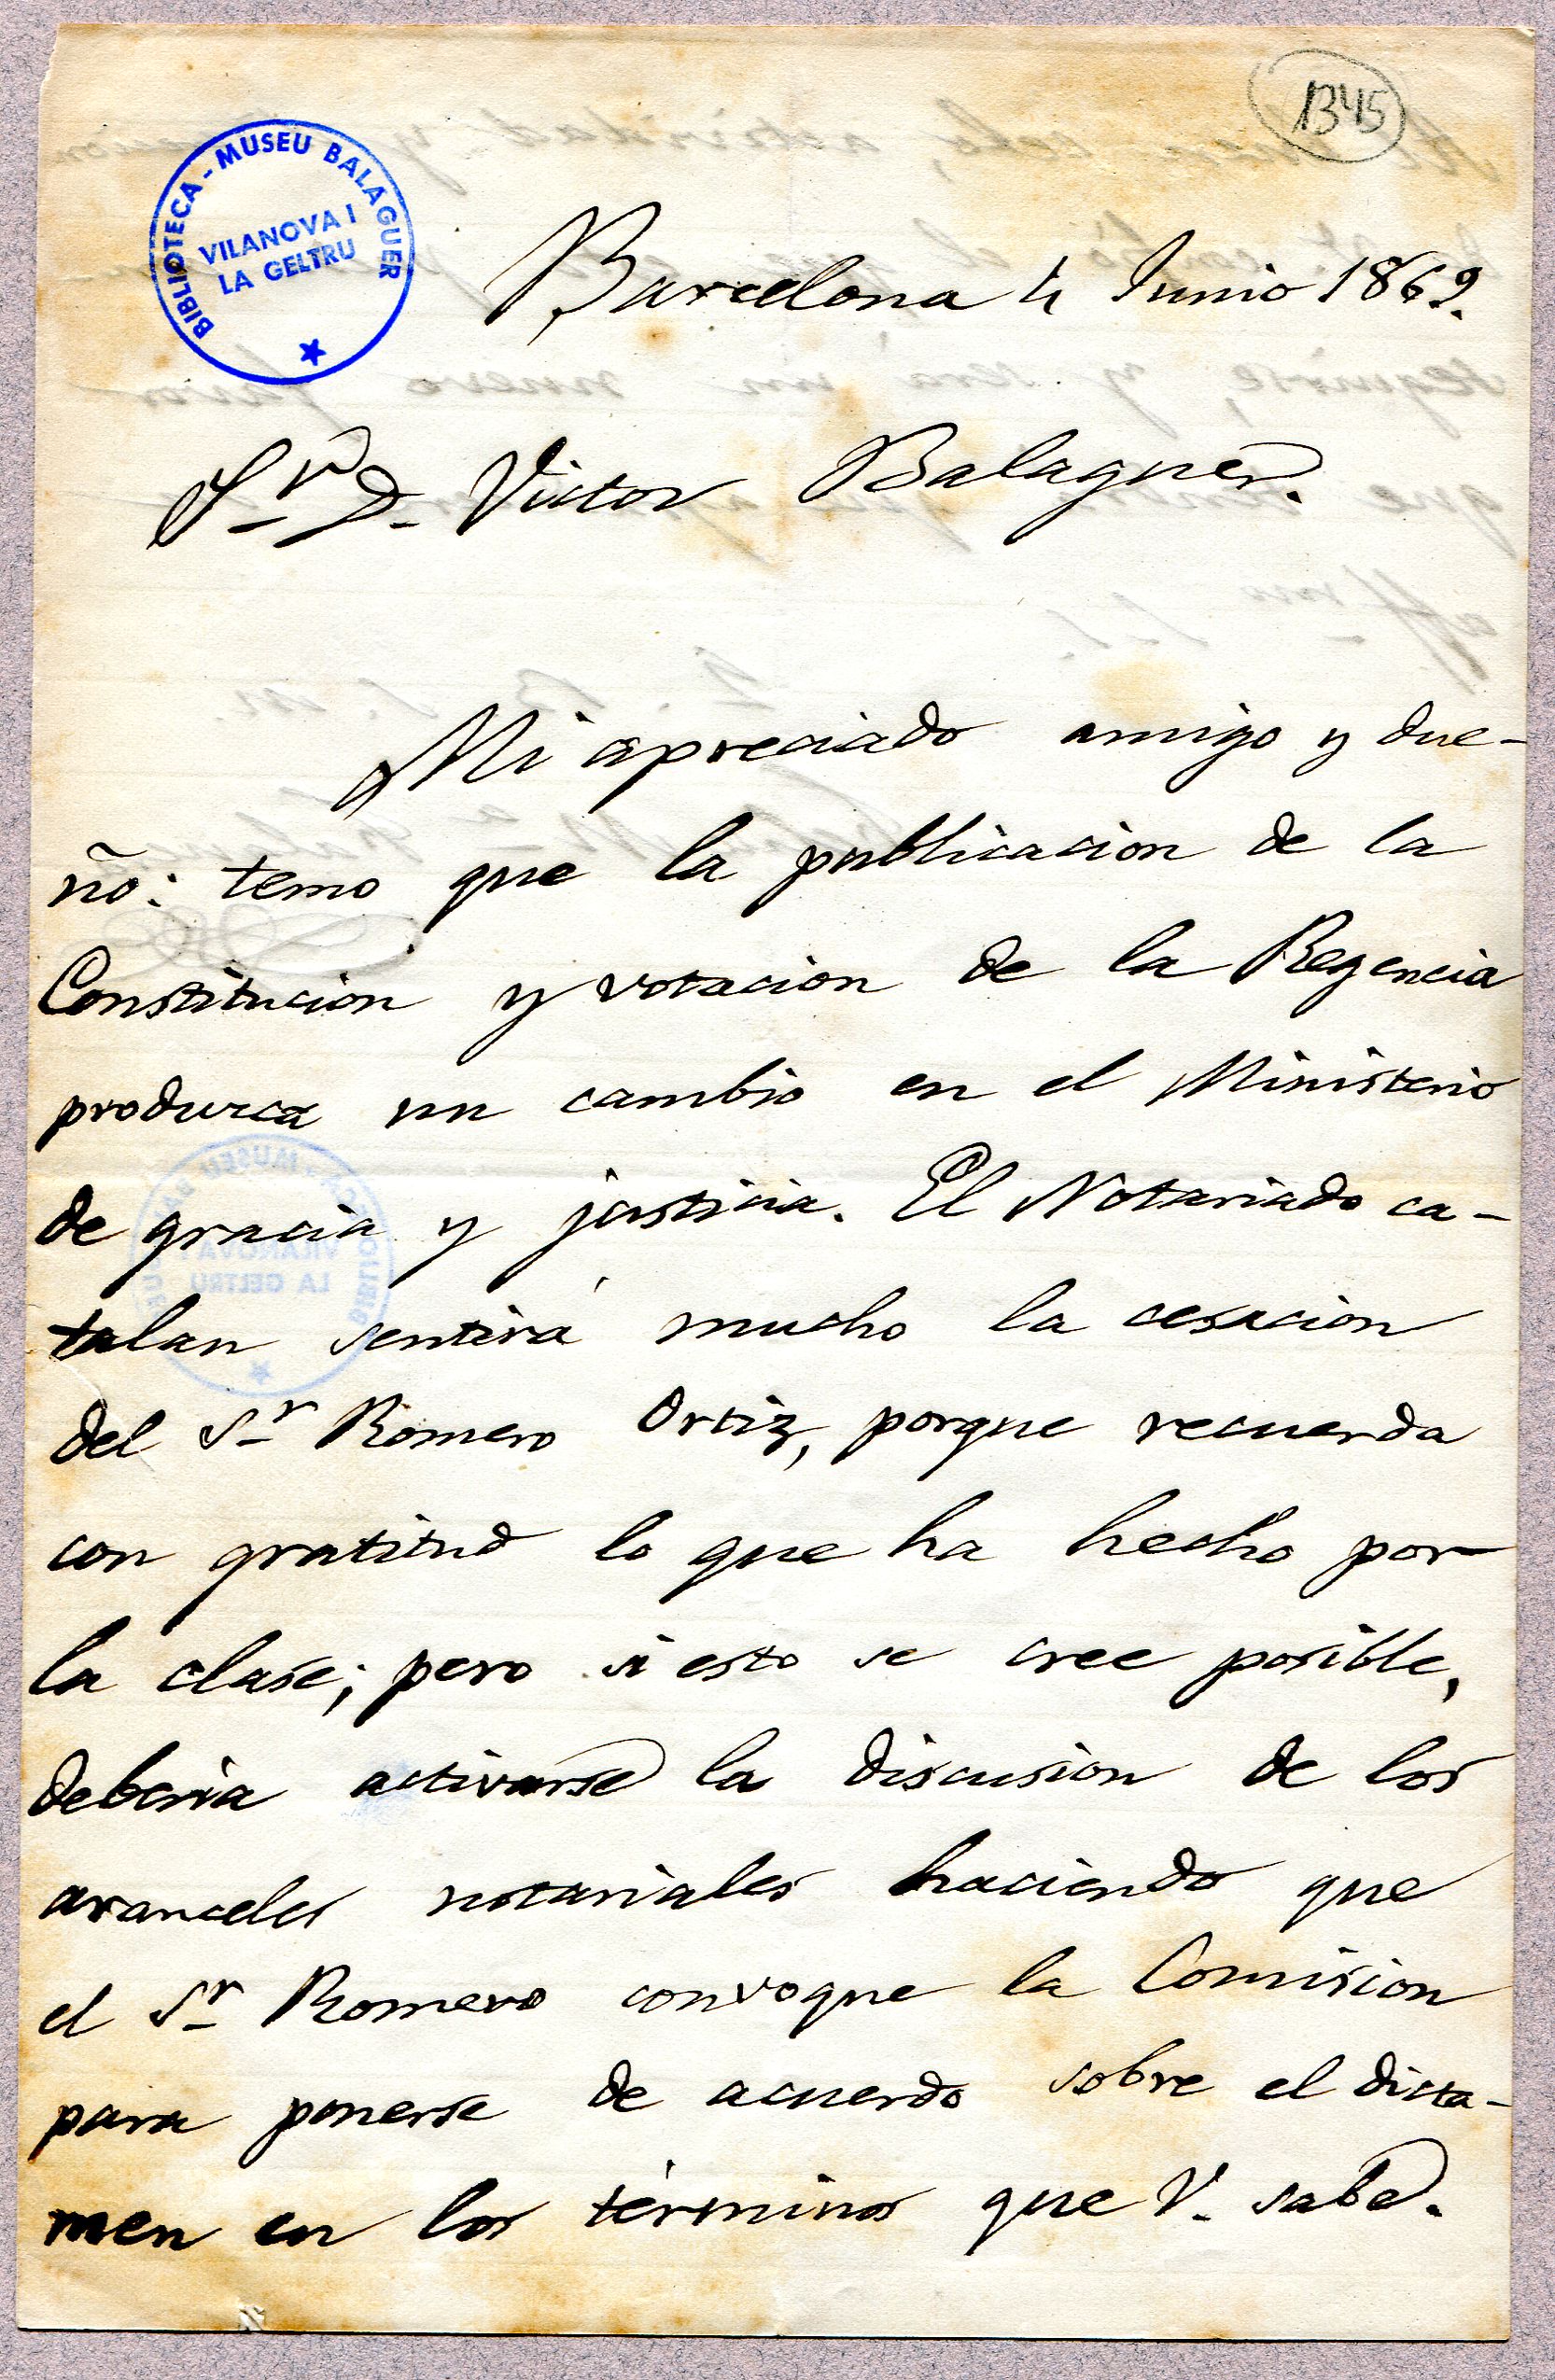 1345
BIBLIOTECA - MUSEU BALAGUER
VILANOVA I
LA GELTRU
Barcelona 4 Junio 1869.
Sr. D. Victor Balaguer.
Mi apreciado amigo y due-
ño: temo que la publicacion de la
Constitucion y votacion de la Regencia
produzca un cambio en el Ministerio
de gracia y justicia. El Notariado ca-
talan sentirá mucho la cesacion
del Sr. Romero Ortiz, porque recuerda
con gratitud lo que ha hecho por
la clase; pero si esto se cree posible,
deberia activarse la discusion de los
aranceles notariales haciendo que
el Sr. Romero convoque la Comision
para ponerse de acuerdo sobre el dicta-
men en los términos que V. sabe.